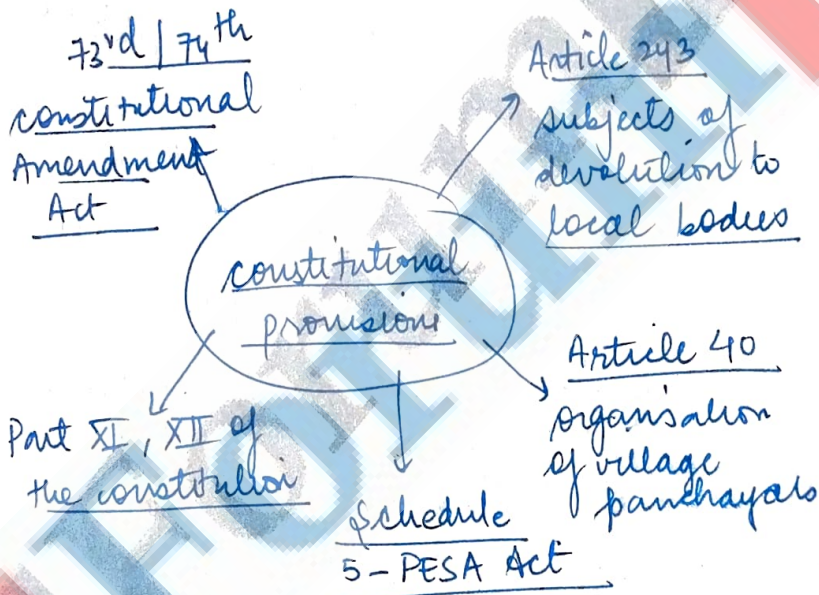 73rd / 74th
constitutional
Amendment
Act
Article 243
subjects of
devolution to
local bodies
constitutional
provisions
Article 40
organisation
of village
panchayats
Part XI, XII of
the constitution
Schedule
5 - PESA Act
Forum